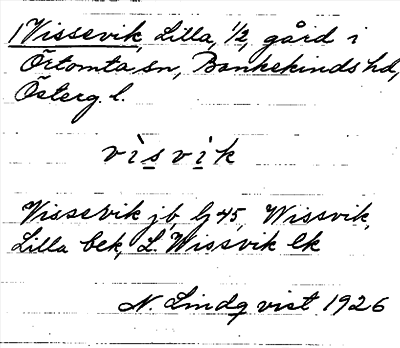 Vissevik, Lilla, 1/2, gård i
Örtomta sn, Bankekinds hd,
Österg. l.
visvik
Vissevik jb, lj 45, Wissvik,
Lilla bek, L. Wissvik ek
N. Lindqvist 1926